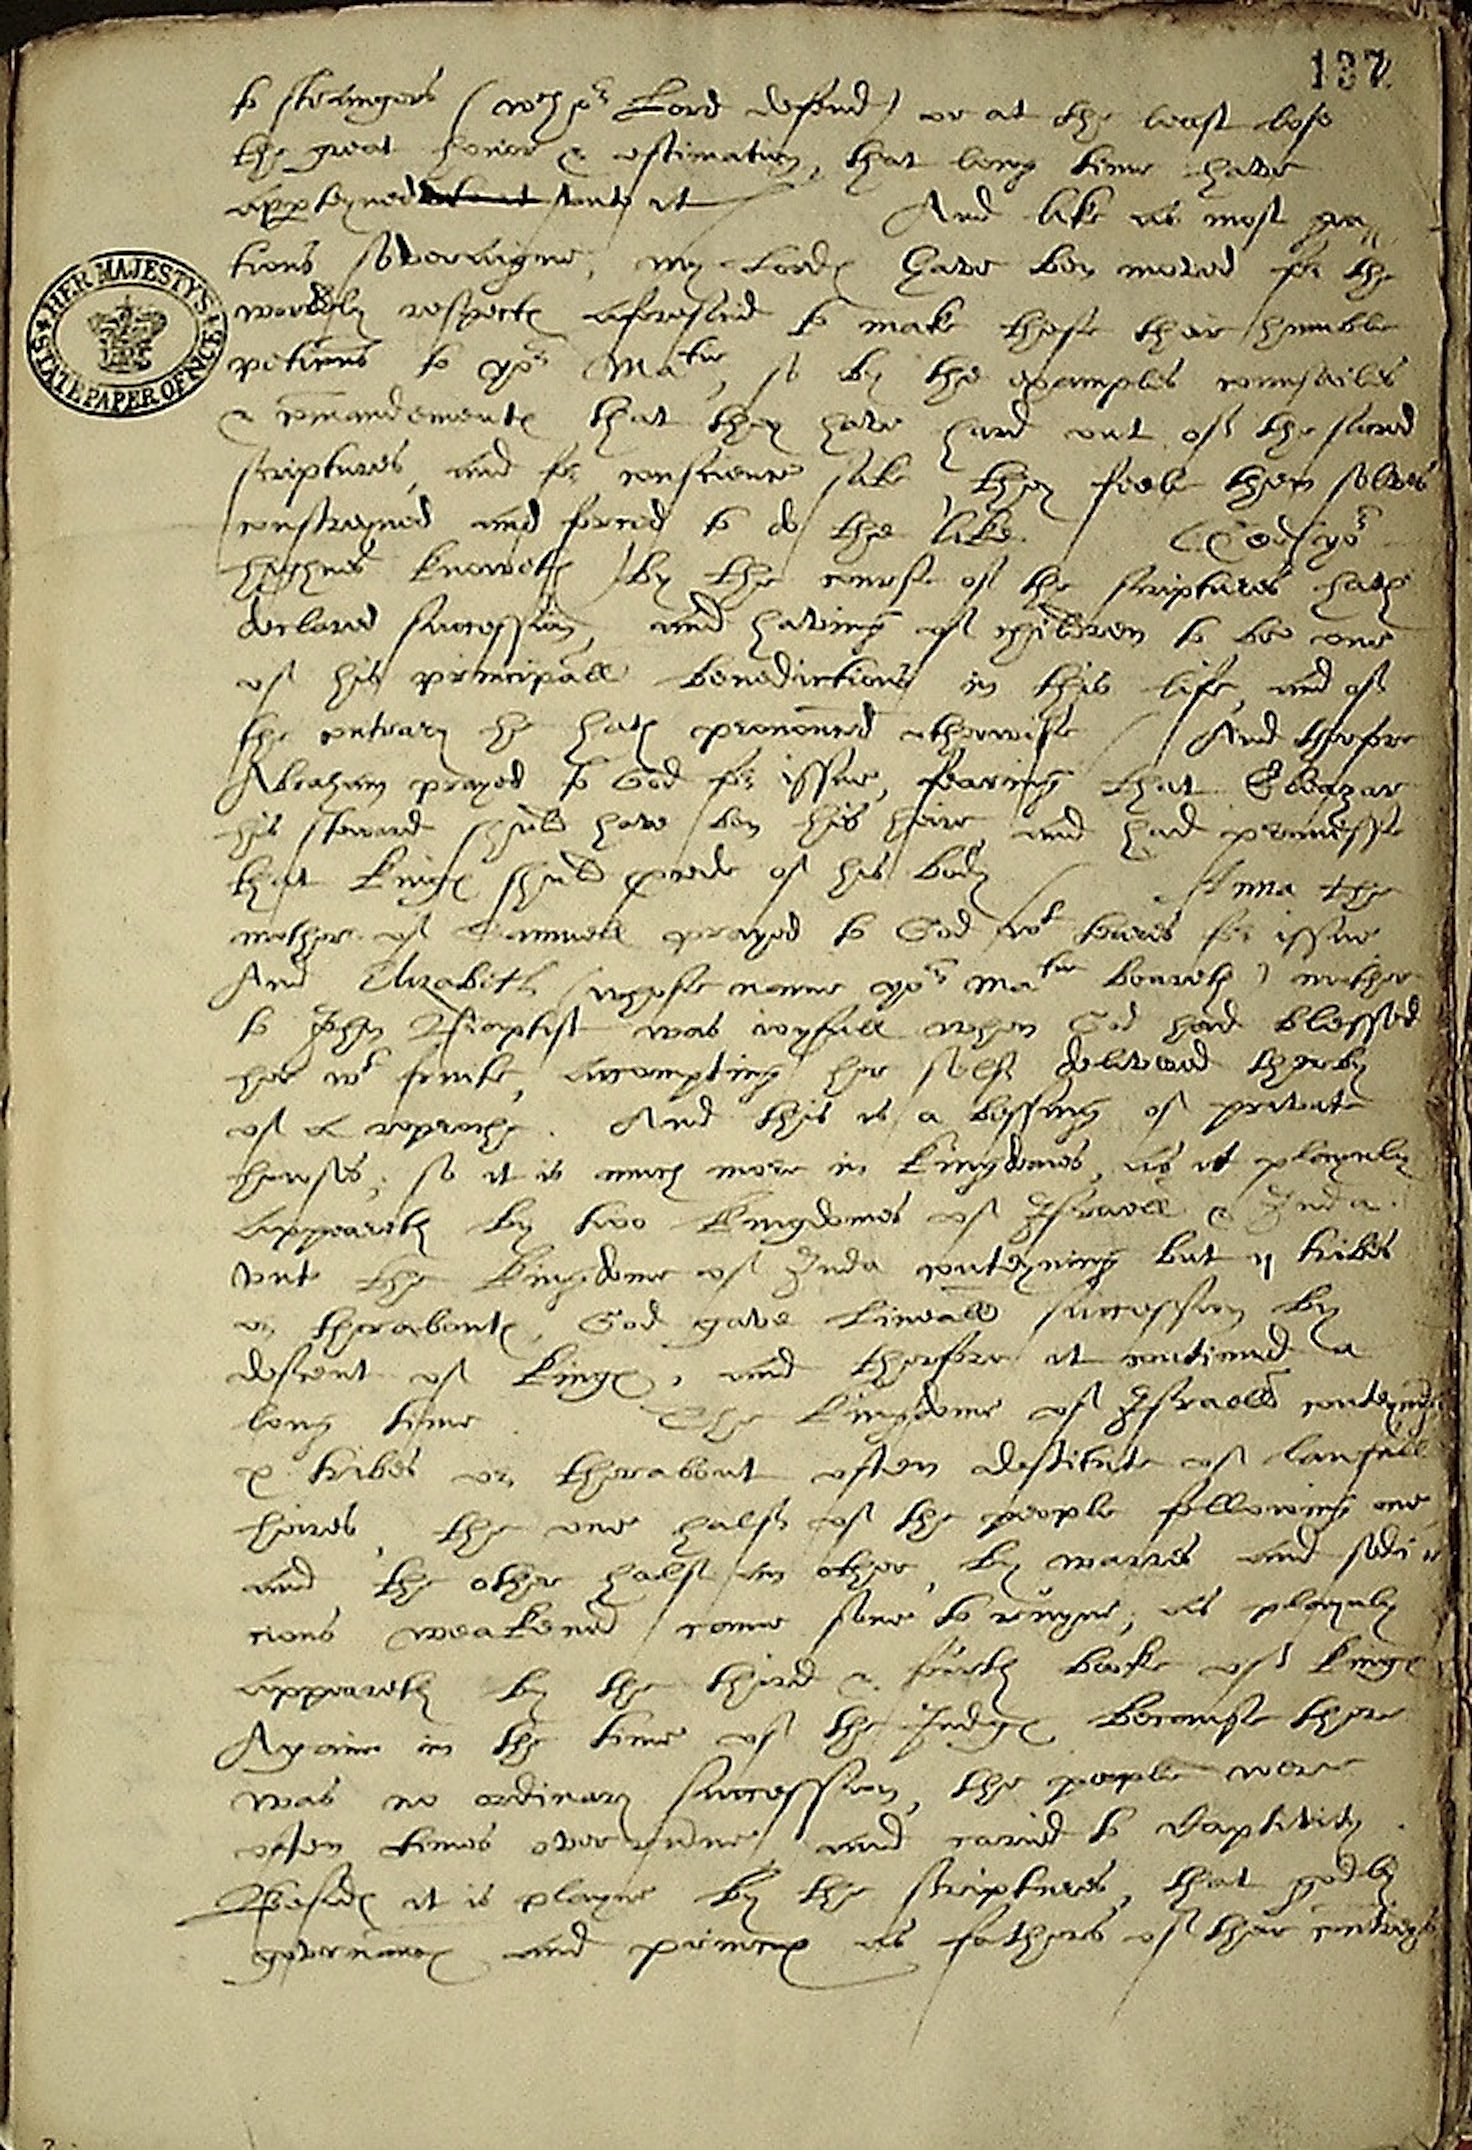 137
to straingers (wch ye Lord defend) or at the least lose
the great honor & estimation, that long time hathe
apperteyned unto it / And like as most gra=
tious soveraigne, my Lordes have ben moved for the
worldly respectes aforesaid to make these their humble
peticions to yor Matie, so by the examples counsailes
& comandementes that they have hard out of the sacred
scriptures, and for conscience sake they feele them selves
constreyned and forced to do the like. / (God yor
highnes knoweth) by the course of the scriptures hath
declared succession, and having of children to be one
of his principall benedictions in this life, and of
the contrary he hath pronounced otherwise / And therfore
Abraham prayed to God for issue, fearing that Eleazar
his steward should have ben his heire and had promesse
that Kinges should procede of his body / Anna the
mother of Samuell prayed to God wt teares for issue
And Elizabeth (whose name yor Matie beareth) mother
to John Baptist was ioyfull when God had blessed
her wt fruite, accompting her self delivered therby
of a reproche. And this is a blessing of private
houses, so it is much more in Kingdomes, as it playnly
appeareth by two Kingdomes of Israell & Juda.
Unto the Kingdome of Juda conteyning but ij tribes
or therabowtes, God gave lineall succession by
descent of Kinges, and therfore it continued a
long time. The Kingdome of Israell conteyning
x tribes or therabout often destitute of laufull
heires, the one half of the people following one
and the other half an other, by warres and sedi=
cions weakened came sone to ruyne, as playnly
appeareth by the third & fourth booke of Kinges
Againe in the time of the Judges because there
was no ordinary succession, the people were
often times overcome and caried to Captivity.
Besides it is playne by the scriptures, that godly
governores and princes as fathers of their contreys
HER MAJESTY'S
STATE PAPER OFFICE